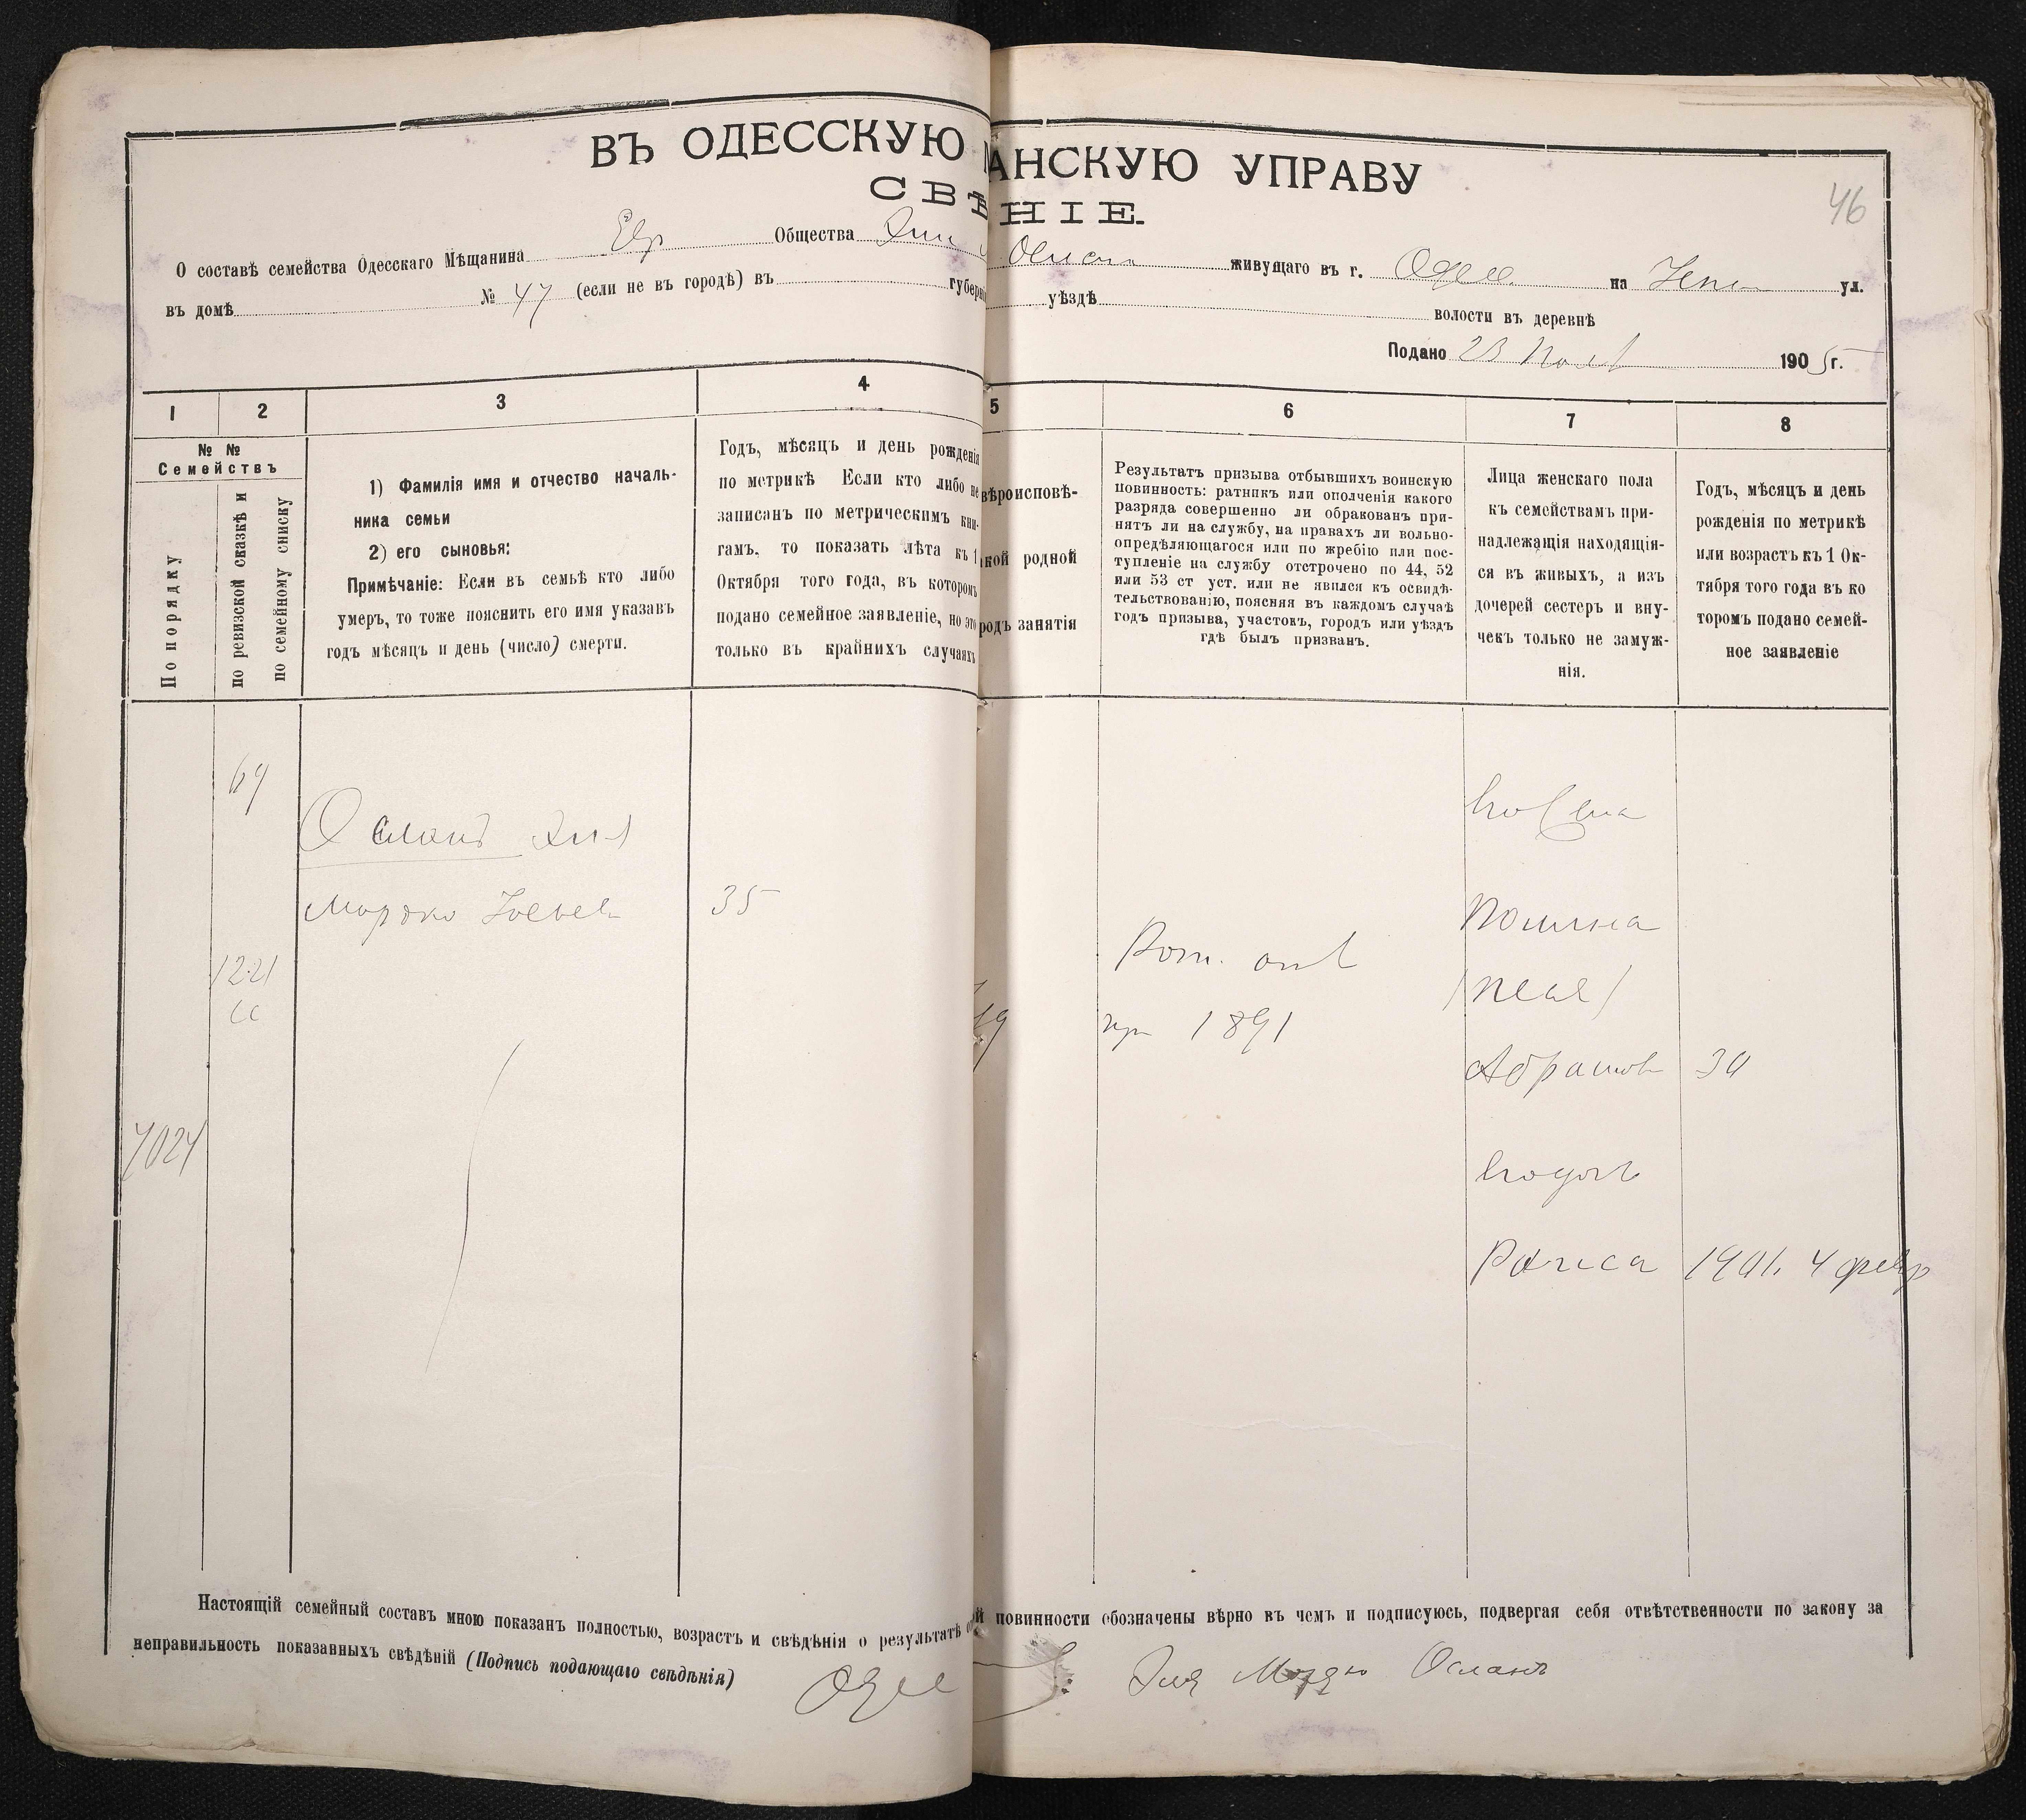 ВЪ ОДЕССКУЮ АНСКУЮ УПРАВУ
СВѢ НІЕ.
46
О составѣ семейства Одесскаго Мѣщанина Евр Общества живущаго въ г. Одессе на ул.
въ домѣ № 47 (если не въ городѣ) въ губерні уѣздѣ волости въ деревнѣ
Подано 1905 г.
1 2 3 4 5 6 7 8
№ №
Семействъ
По порядку
по ревизской сказкѣ и
по семейному списку
1) Фамилія имя и отчество началь-
ника семьи
2) его сыновья:
Примѣчаніе: Если въ семьѣ кто либо
умеръ, то тоже пояснить его имя указавъ
годъ мѣсяцъ и день (число) смерти.
Годъ, мѣсяцъ и день рожденія
по метрикѣ Если кто либо не
записанъ по метрическимъ кни-
гамъ, то показать лѣта къ 1
Октября того года, въ которомъ
подано семейное заявленіе, но это
только въ крайнихъ случаяхъ
вѣроисповѣ-
кой родной
родъ занятія
Результатъ призыва отбывшихъ воинскую
повинность: ратникъ или ополченія какого
разряда совершенно ли обракованъ при-
нятъ ли на службу, на правахъ ли вольно-
опредѣляющагося или по жребію или пос-
тупленіе на службу отстрочено по 44, 52
или 53 ст уст. или не явился къ освидѣ-
тельствованію, поясняя въ каждомъ случаѣ
годъ призыва, участокъ, городъ или уѣздъ
гдѣ былъ призванъ.
Лица женскаго пола
къ семействамъ при-
надлежащія находящія-
ся въ живыхъ, а изъ
дочерей сестеръ и вну-
чекъ только не замуж-
нія.
Годъ, мѣсяцъ и день
рожденія по метрикѣ
или возрастъ къ 1 Ок-
тября того года въ ко
торомъ подано семей-
ное заявленіе
Осланъ Эля
Мордко 35
1221
Рат. опл
пр 1891
Абрамов 30
7024
Раиса 1901. 4 февр
Настоящій семейный составъ мною показанъ полностью, возрастъ и свѣдѣнія о результатѣ повинности обозначены вѣрно въ чемъ и подписуюсь, подвергая себя отвѣтственности по закону за
неправильность показанныхъ свѣдѣній (Подпись подающаго свѣдѣнія)
Эля Мордко Осланъ